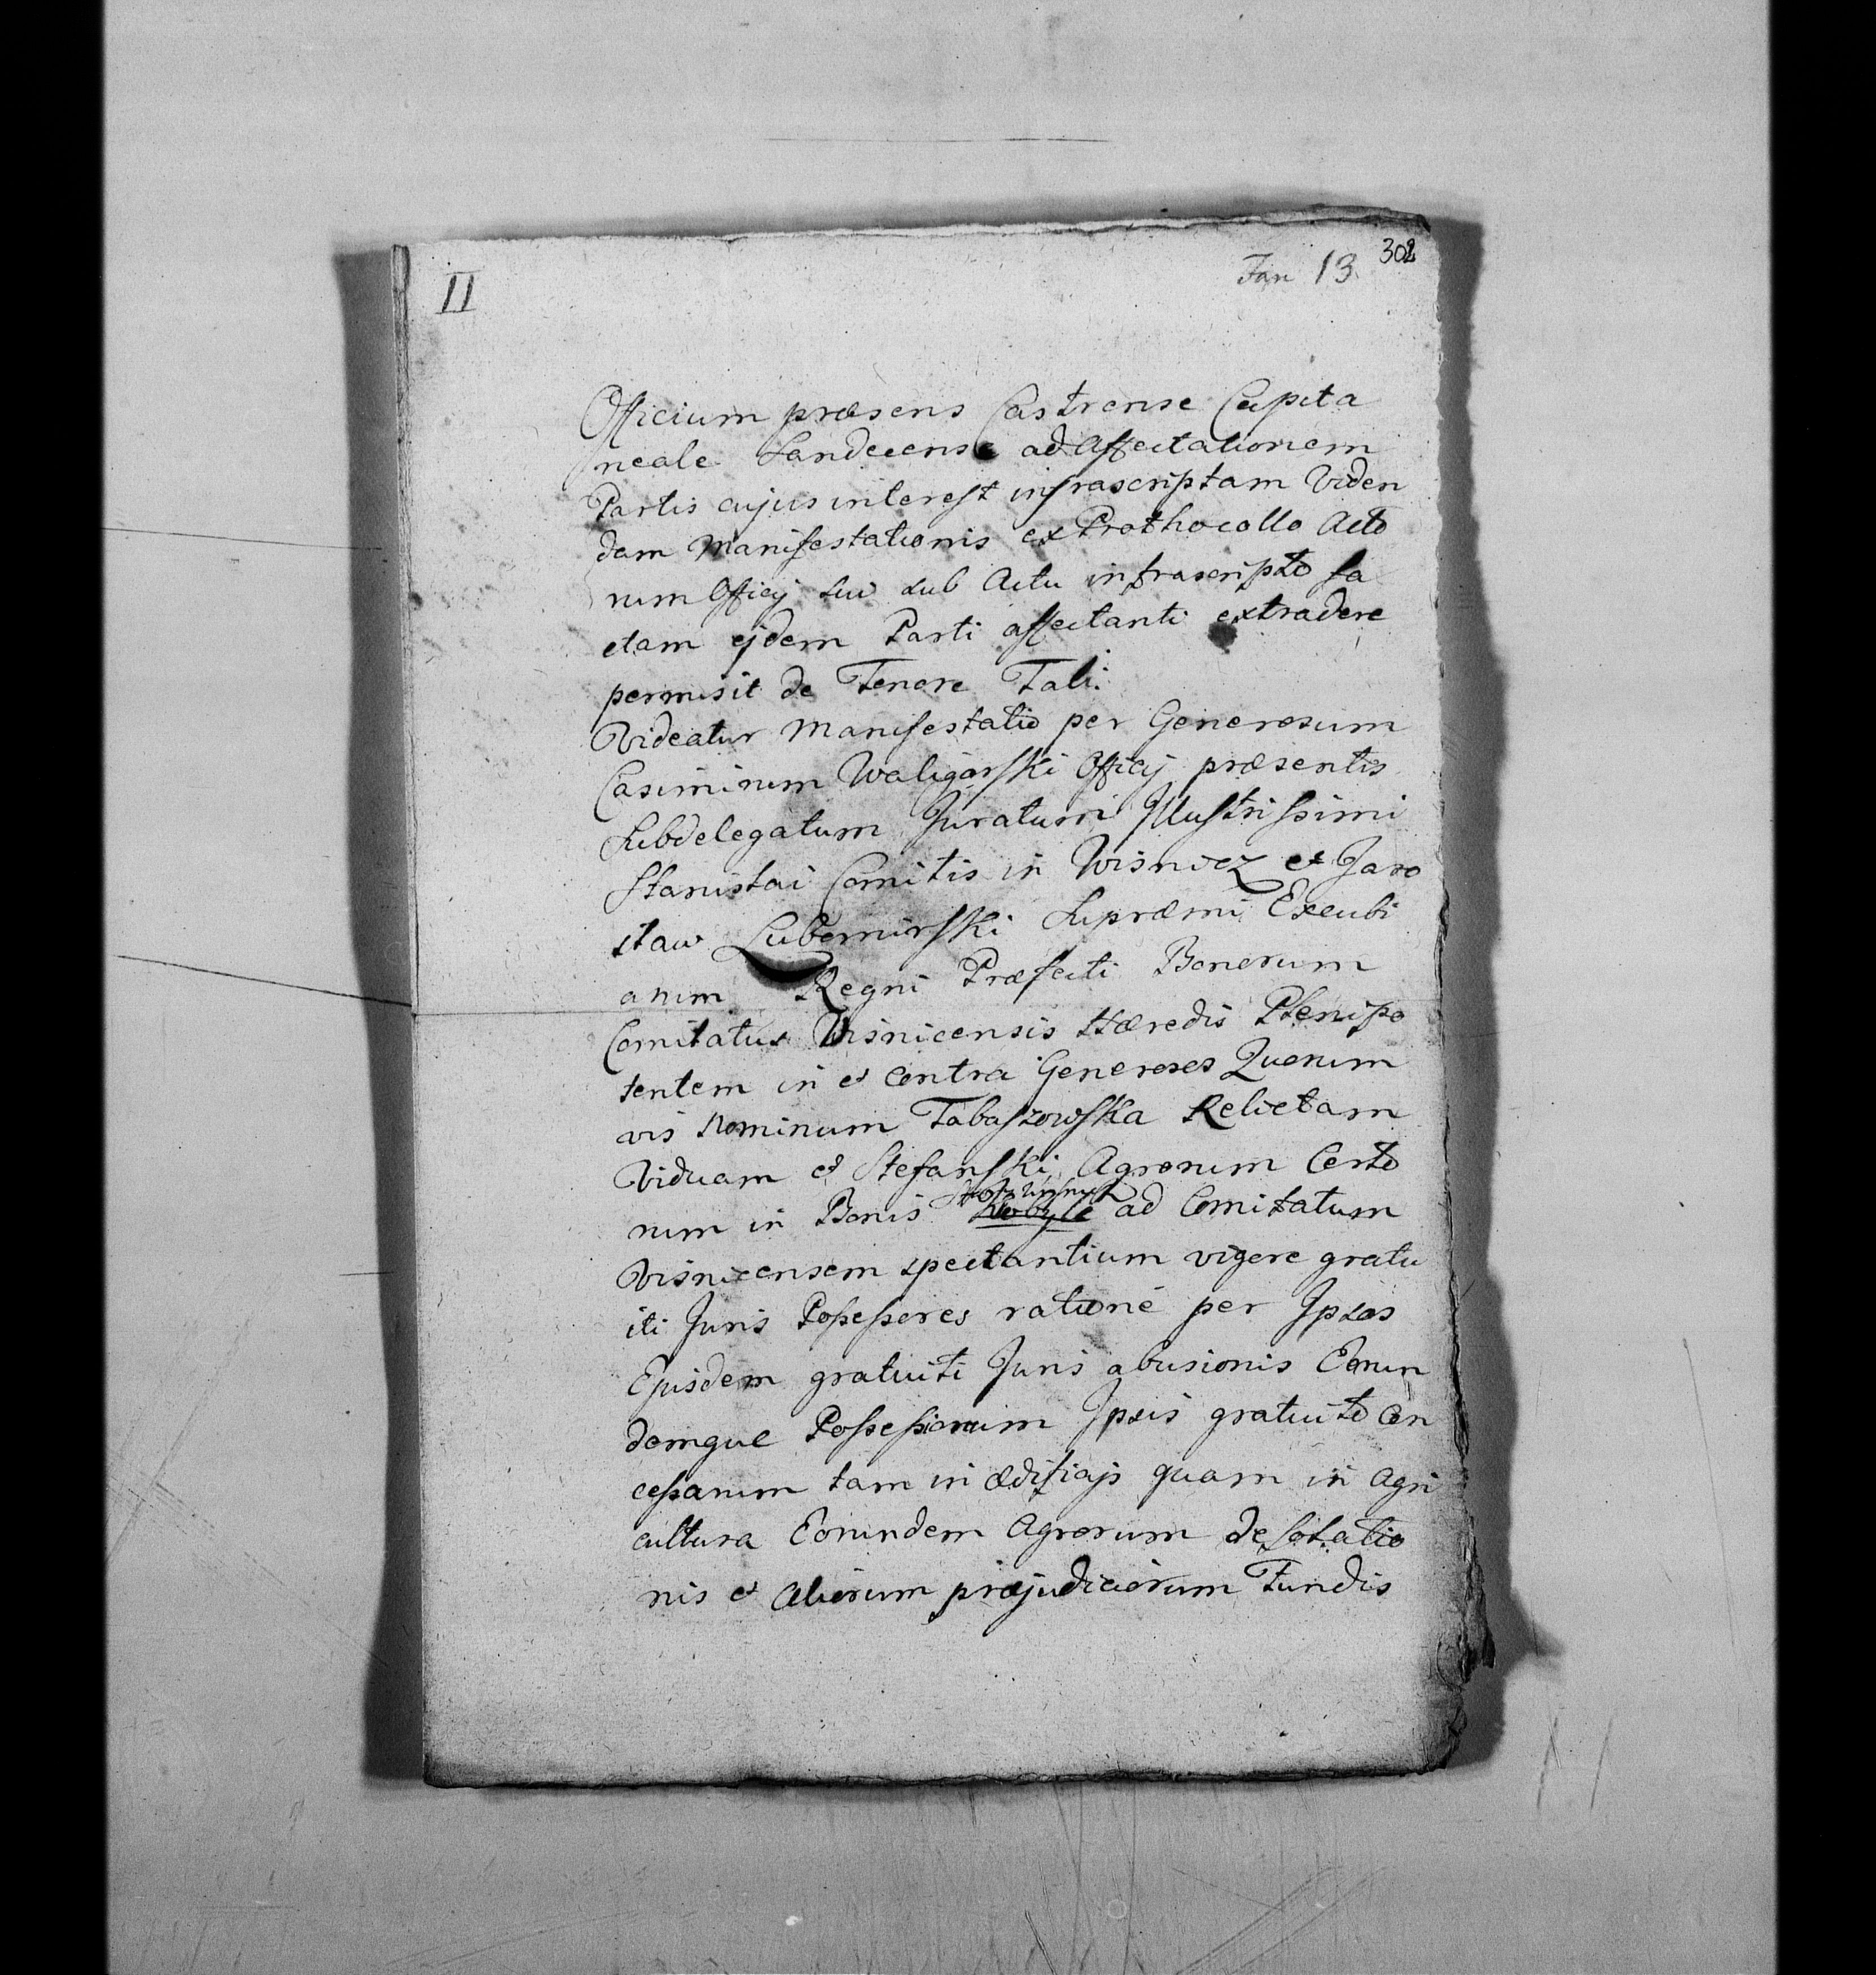 II
Jan 13.
302
Officium præsens Castrense Capita
neale Sandecense ad affectationem
Partis cujus interest infrascriptam Viden
dam Manifestationis ex Prothocollo Acto
rum Officij sui sub Actu infrascripto fa
ctam ejdem Parti affectanti extradere
permisit de Tenore Tali.
Videatur Manifestatio per Generosum
Casimirum Waligorski Officij præsentis
Subdelegatum Juratum Jllustrissimi
Stanislai Comitis in Wisnicz et Jaro
sław Lubomirski Supræmi Excubi
arum Regni Præfecti Bonorum
Comitatus Visnicensis Hæredis Plenipo
tentem in et contra Generosos Quorum
vis Nominum Tabaszowska Relictam
Viduam et Stefanski Agrorum Certo
rum in Bonis Kobyle ad Comitatum
Visnicensem spectantium vigore gratu
iti Juris Possessores ratione per Jpsos
Ejusdem gratuiti Juris abusionis Eorun
demque Possessionum Jpsis gratuito Con
cessarum tam in ædificijs quam in Agri
cultura Eorundem Agrorum desolatio
nis et aliorum præjudiciorum Fundis